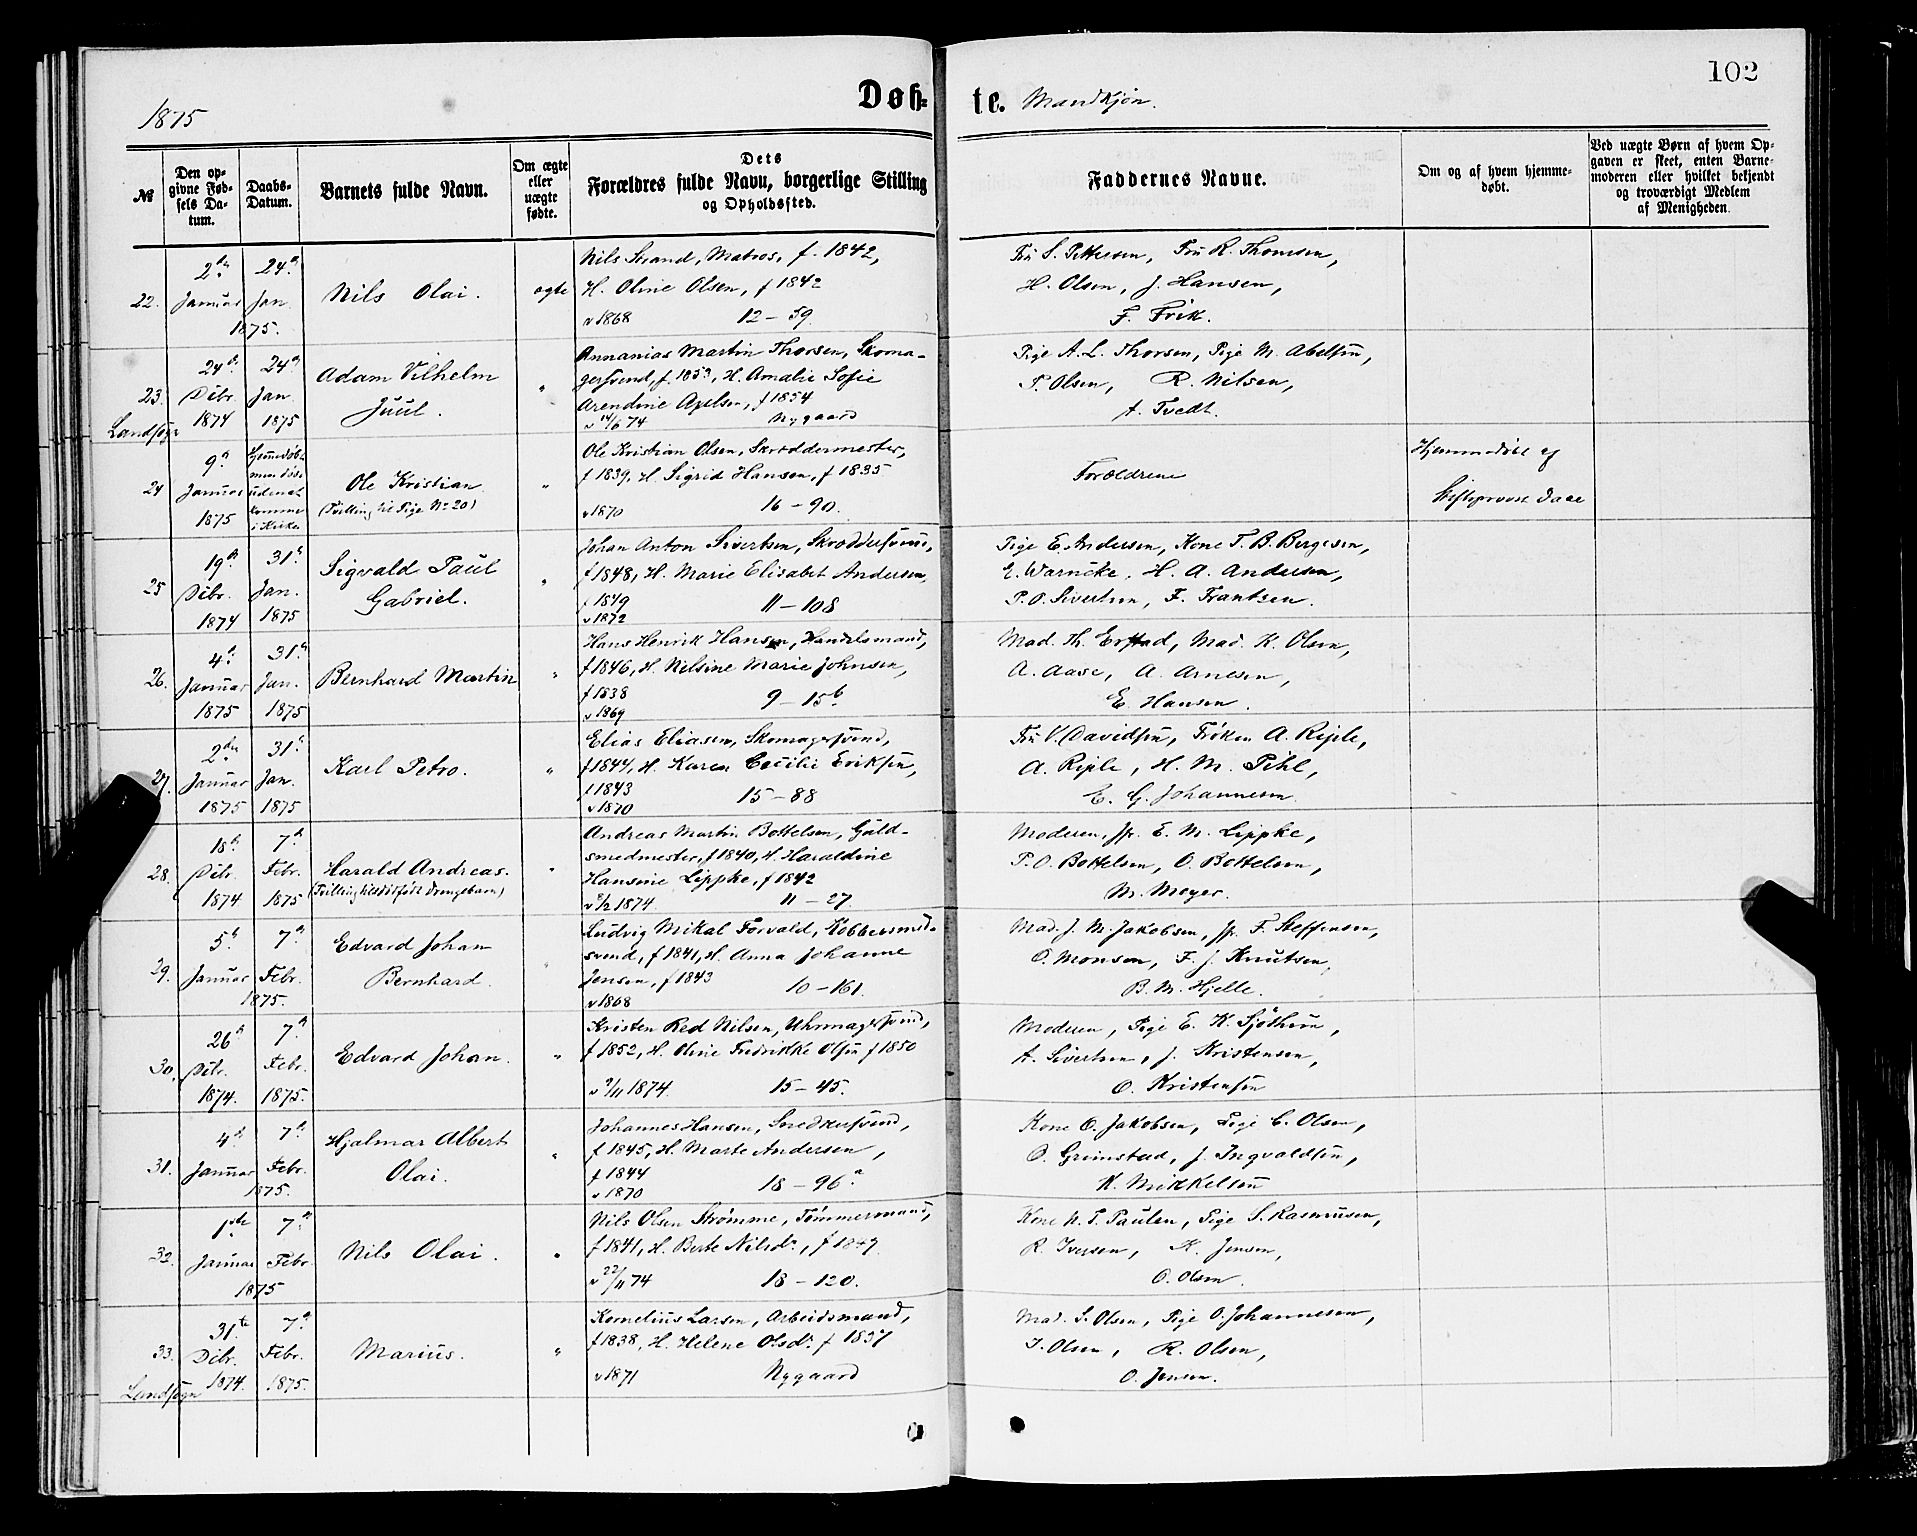 102
1875
Døb-
te. Mandkjøn.
№
Den op-
givne Fød-
sels Da-
tum.
Daabs-
Datum.
Barnets fulde Navn.
Om ægte
eller
uægte
fødte.
Dets
Forældres fulde Navn, borgerlige Stilling
og Opholdssted.
Faddernes Navne.
Om og af hvem hjemme-
døbt.
Ved uægte Børn af hvem Op-
gaven er skeet, enten Barne-
moderen eller hvilket bekjendt
og troværdigt Medlem
af Menigheden.
22.
2den
Januar
24de
Jan.
1875.
Nils Olai.
ægte
Nils Strand, Matros, f. 1842,
H. Oline Olsen, f 1842
v 1868 12 - 59
Fru S. Pettersen, Fru R. Thomsen,
H. Olsen, J. Hansen,
F. Frik.
23.
Landsogn
24de
Dcbr.
1874
24de
Jan.
1875
Adam Vilhelm
Juul.
"
Annanias Martin Thorsen, Skoma-
gersvend, f. 1853, H. Amalie Sofie
Arendine Axelsen, f 1854
v 14/6 74 Nygaard
Pige A. L. Thorsen, Pige M. Abelsen,
P. Olsen, R. Nilsen,
A. Tvedt.
24
9de
Januar
1875
Hjemmedøbt
men døde
uden at
komme
i Kirke
Ole Kristian
(Tvilling til Pige No 20)
"
Ole Kristian Olsen, Skræddermester,
f 1839, H. Sigrid Hansen, f 1835
v 1870 16 - 90.
Forældrene
Hjemmedøbt af
Stiftsprovst Daae
25
19de
Dcbr.
1874
31te
Jan.
1875
Sigvald Paul
Gabriel.
"
Johan Anton Sivertsen, Skræddersvend,
f 1848, H. Marie Elisabet Andersen
f 1849 11 - 108
v 1872
Pige E. Andersen, Kone T. B. Bergesen,
E. Warncke, H. A. Andersen,
P. O. Sivertsen, F. Frantsen.
26.
4de
Januar
1875
31te
Jan.
1875
Bernhard Martin
"
Hans Henrik Hansen, Handelsmand,
f 1846, H. Nilsine Marie Johnsen,
f 1838 9 - 15b
v 1869
Mad. Th. Erstad, Mad. K. Olsen,
A. Aase, A. Arnesen,
E. Hansen.
27.
2den
Januar
1875
31te
Jan.
1875
Karl Petro.
"
Elias Eliasen, Skomagersvend,
f 1844, H. Karen Cecilie Eriksen,
f 1843 15 - 88
v 1870
Fru V. Davidsen, Frøken A. Riple,
A. Riple, H. M. Pihl,
E. G. Johannesen.
28.
18de
Dcbr.
1874
7de
Febr.
1875
Harald Andreas.
(Tvilling til dødfødt Drengebarn)
"
Andreas Martin Bottelsen, Guld-
smedmester, f 1840, H. Haraldine
Hansine Lippke, f 1842
v 1874 11 - 27.
Moderen, Jfr. E. M. Lippke,
P. O. Bottelsen, O. Bottelsen,
M. Meyer.
29.
5te
Januar
7de
Febr.
1875.
Edvard Johan
Bernhard.
"
Ludvig Mikal Forvald, Kobbersmed-
svend, f 1841, H. Anna Johanne
Jensen, f 1843 10 - 161.
v 1868
Mad. J. M. Jakobsen, Jfr. F. Steffensen,
O. Monsen, F. J. Knutsen,
B. M. Hjelle.
30.
26de
Dcbr.
1874.
7de
Febr.
1875.
Edvard Johan.
"
Kristen Red Nilsen, Uhrmagersvend,
f 1852, H. Oline Fredrikke Olsen f 1850
v 9/11 1874 15 - 45.
Moderen, Pige E. K. Sjøthun,
A. Sivertsen, J. Kristensen,
O. Kristensen
31.
4de
Januar
7de
Febr.
1875.
Hjalmar Albert
Olai.
"
Johannes Hansen, Snedkersvend,
f 1845, H. Marte Andersen,
f 1844 18 - 96a
v 1870
Kone O. Jakobsen, Pige C. Olsen,
O. Grimstad, J. Ingvaldsen,
K. Mikkelsen
32.
1ste
Januar
7de
Febr.
1875
Nils Olai.
"
Nils Olsen Strømme, Tømmermand,
f 1841, H. Berte Nilsdr., f 1847
v 22/11 74 18 - 120.
Kone N. P. Paulsen, Pige S. Rasmusen,
R. Iversen, K. Jensen,
O. Olsen.
33.
Landsogn
31te
Dcbr.
1874.
7de
Febr.
1875.
Marius.
"
Kornelius Larsen, Arbeidsmand,
f 1838, H. Helene Olsdr. f 1837
v 1871 Nygaard
Mad. S. Olsen, Pige O. Johannesen,
I. Olsen, R. Olsen,
O. Jensen.